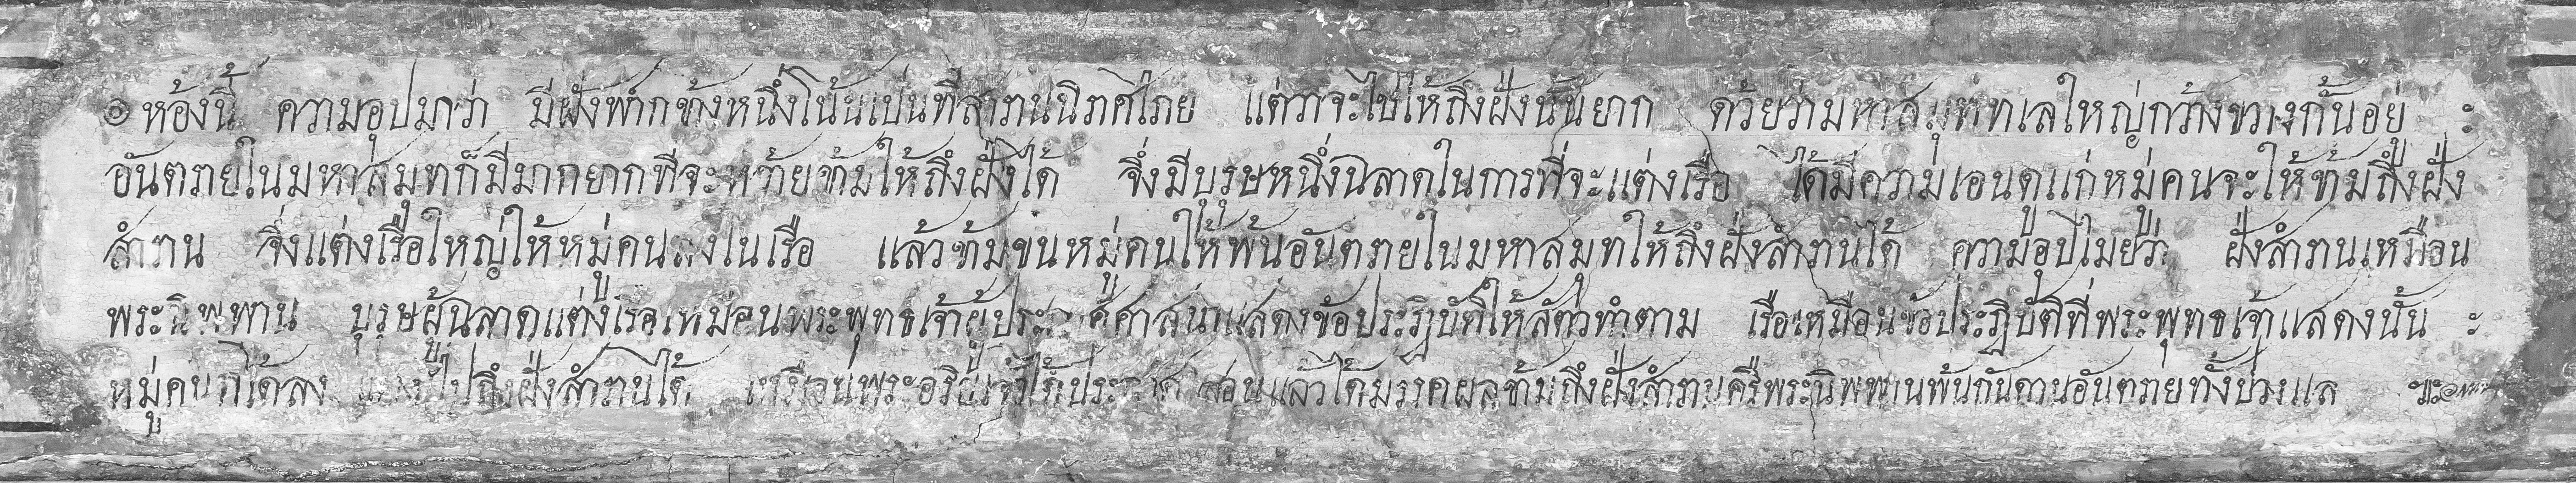 ๏ ห้องนี้ ความอุปมาว่า มีฝั่งฟากข้างหนึ่งโน้นเปนที่สำราบนิราศไภย แต่ว่าจะไปให้ถึงฝั่งนั้นยาก ด้วยว่ามหาสมุททเลใหญ่กว้างขวางกั้นอยู่ ะ
อันตรายในมหาสมุทก็มีมากยากที่จะหว้ายข้ามให้ถึงฝั่งได้ จึ่งมีบุรุษหนึ่งฉลาดในการที่จะแต่งเรือ ได้มีความเอนดูแก่หมู่คนจะให้ข้ามถึงฝั่ง
สำราน จึ่งแต่งเรือใหญ่ให้หมู่คนลงในเรือ แล้วข้ามขนหมู่คนให้พ้นอันตรายในมหาสมุทให้ถึงฝั่งสำรานได้ ความอุปไมยว่า ฝั่งสำรานเหมือน
พระนิพพาน บุรุษผู้ฉลาดแต่งเรือเหมือนพระพุทธเจ้าผู้ประ ศาสนาแสดงข้อประฏิบัติให้สัตวทำตาม เรือเหมือนข้อประฏิบัติที่พระพุทธเจ้าแสดงนั้น ะ
หมู่คนที่ได้ลง ไปถึงฝั่งสำรานได้ เหมือนพระอริยเจ้าได้ประ สอนแล้วได้มรรคผลข้ามถึงฝั่งสำรานคือพระนิพพานพ้นกันดานอันตรายทั้งปวงแล ๚ะ๛